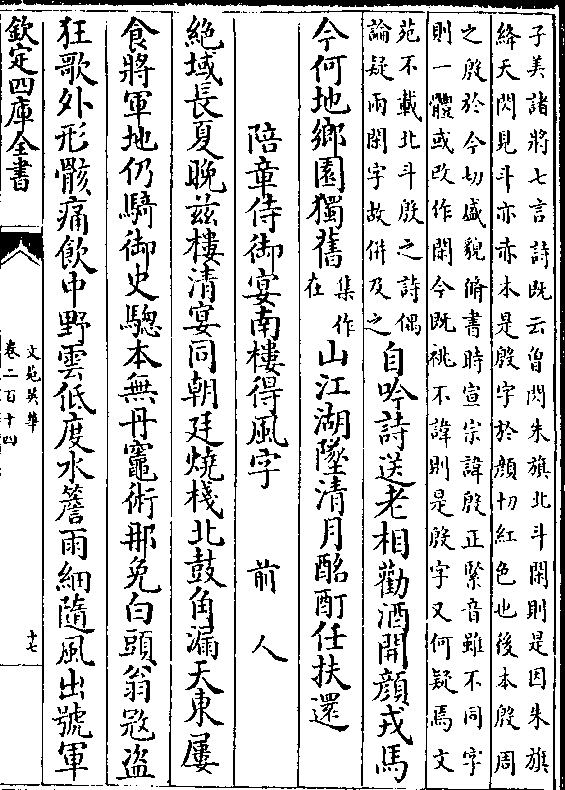 子美諸將七言詩既云曽閃朱旗北斗閑則是因朱旗
絳天閃見斗亦赤本是殷字於顔切紅色也後本殷周
之殷於今切盛貌脩書時宣宗諱殷正緊音雖不同字
則一體或改作閑今既祧不諱則是殷字又何疑焉文
苑不載北斗殷之詩偶
論疑兩閑字故併及之
自吟詩送老相勸酒開顔戎馬
今何地鄉園獨舊
集作
在
山江湖墜清月酩酊任扶還
陪章侍御宴南樓得風字 前人
絶域長夏晚兹樓清宴同朝廷燒棧北鼓角漏天東屢
食將軍地仍騎御史驄本無丹竈術那免白頭翁冦盗
狂歌外形骸痛飲中野雲低度水簷雨細隨風出號軍
欽定四庫全書
文苑英華
卷二百十四
十七